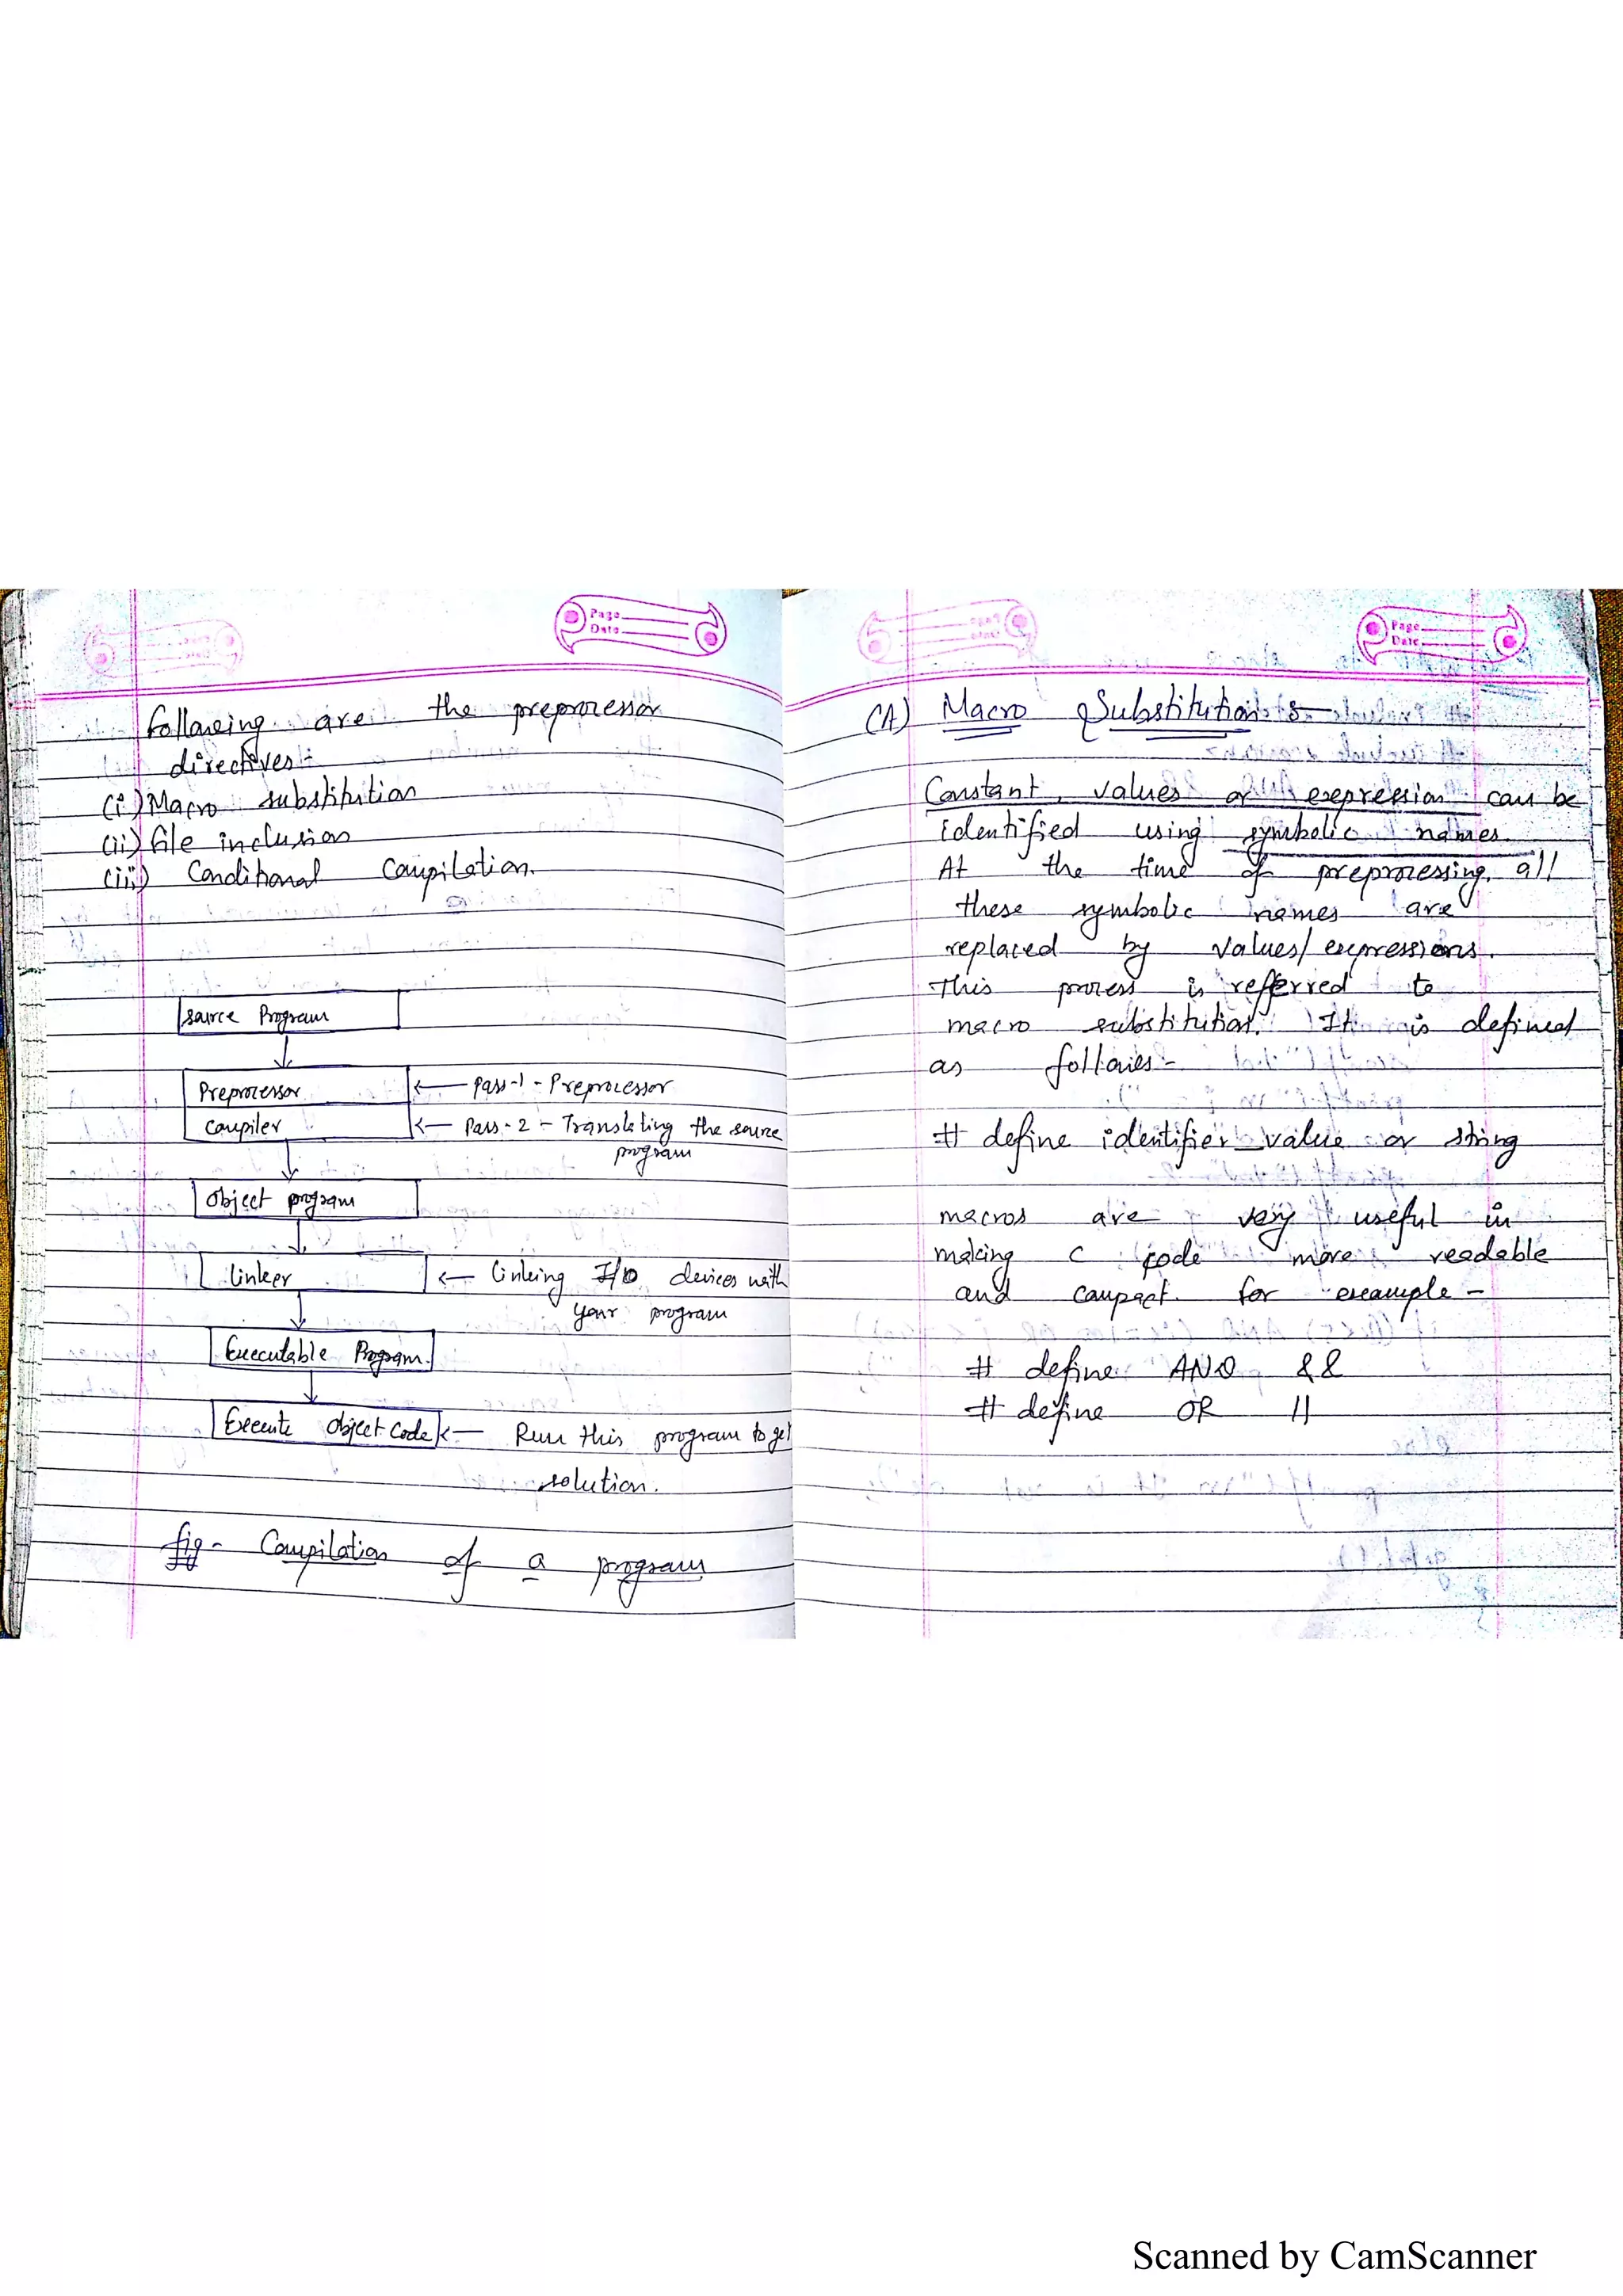 Page
Date
Following are the preprocessor
directives:-
(i) Macro substitution
(ii) File inclusion
(iii) Conditional Compilation.
Source Program
Preprocessor ← Pass-1 - Preprocessor
Compiler ← Pass-2 - Translating the source
program
Object program
Linker ← Linking I/O devices with
your program
Executable Program.
Execute Object Code ← Run this program to get
solution.
fig- Compilation of a program
Page
Date
(A) Macro Substitution :-
Constant, values or expression can be
identified using symbolic names.
At the time of preprocessing, all
these symbolic names are
replaced by values/expressions.
This process is referred to
macro substitution. It is defined
as follows-
# define identifier value or string
macros are very useful in
making C code more readable
and compact. for example -
# define AND &&
# define OR ||
Scanned by CamScanner